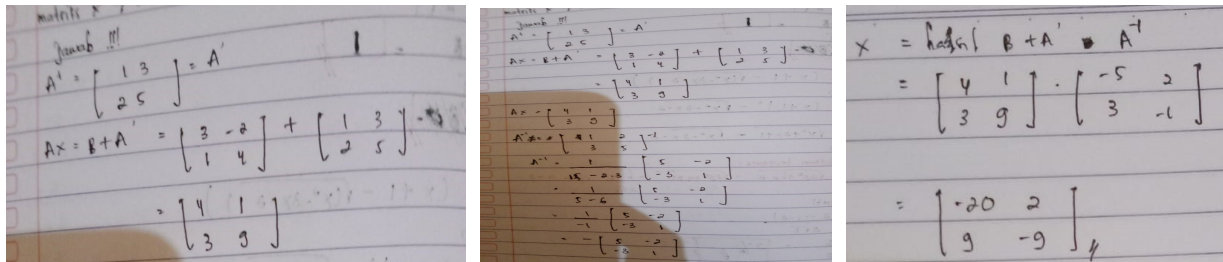 matriks x
Jawab !!!
A' = [ 1 3
2 5 ] = A'
Ax = B + A' = [ 3 -2
1 4 ] + [ 1 3
2 5 ]
= [ 4 1
3 9 ]
Jawab !!!
A' = [ 1 3
2 5 ] = A'
Ax = B + A' = [ 3 -2
1 4 ] + [ 1 3
2 5 ]
= [ 4 1
3 9 ]
Ax = [ 4 1
3 9 ]
A⁻¹ = 1 / 15 - 2·3 [ 5 -2
-3 1 ]
= 1 / 5 - 6 [ 5 -2
-3 1 ]
= 1 / -1 [ 5 -2
-3 1 ]
= - [ 5 -2
-3 1 ]
x = hasil B + A' · A⁻¹
= [ 4 1
3 9 ] · [ -5 2
3 -1 ]
= [ -20 2
9 -9 ]